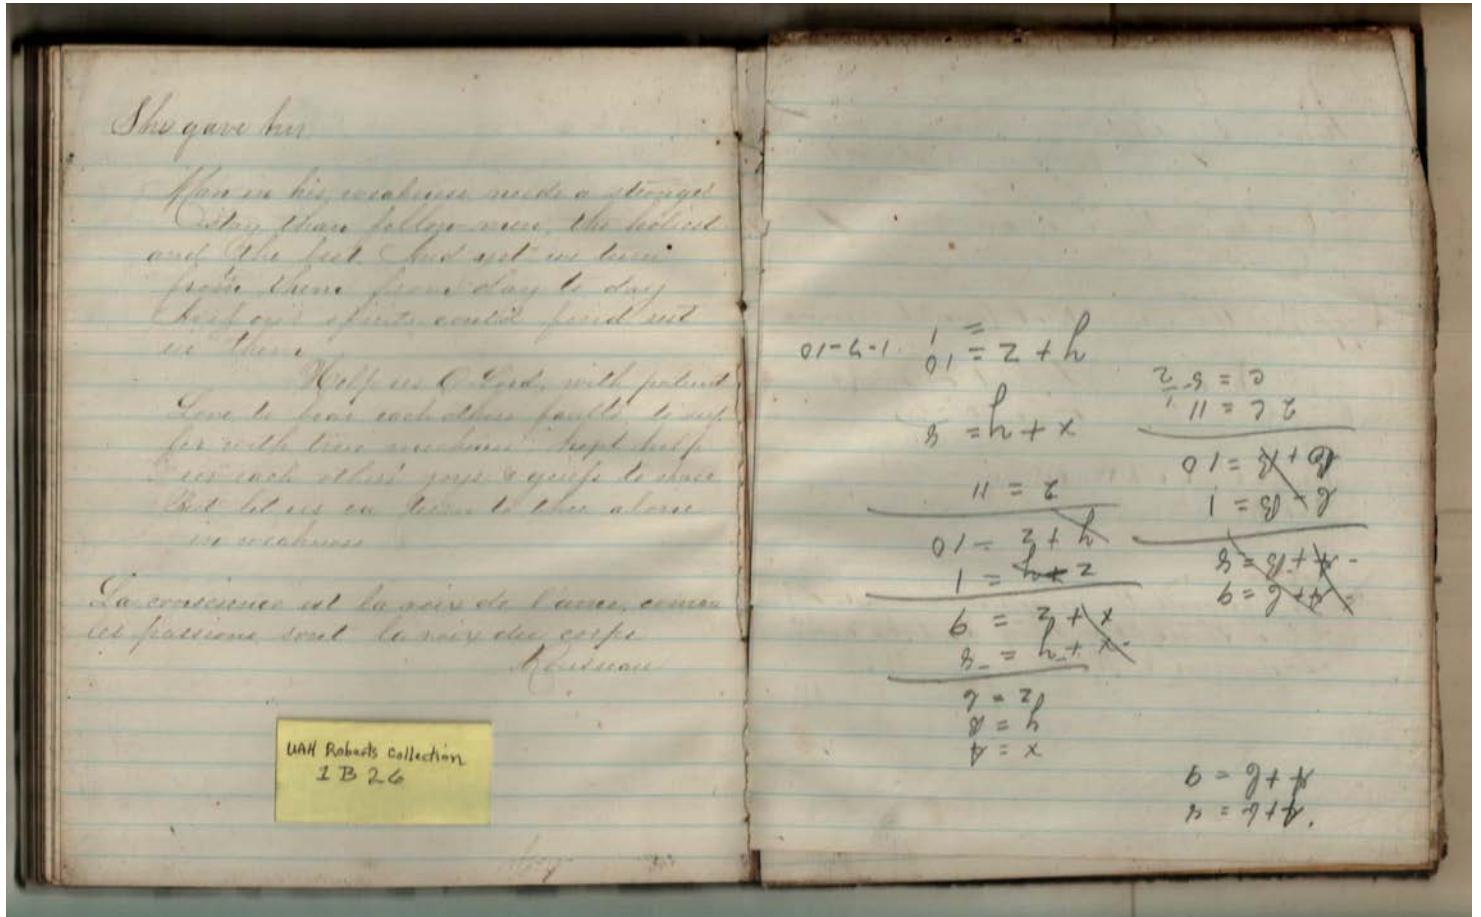 She gave him
Man in his weakness needs a stronger
stay than fellow men, the holiest
and the best. And yet we turn
to them from day to day
As if our spirits could find rest
in them.
Help us O Lord, with patient
Love to bear each others faults, to suf-
fer with true meekness; help
us each others' joys & griefs to share
But let us turn to thee alone
in weakness
La conscience est la voix de l'ame, comme
les passions sont la voix du corps
Rousseau
UAH Roberts Collection
1 B 26
A + C = 9
- A + B = 8
C - B = 1
C + B = 10
2 C = 11
C = 5 1/2
x = A
y = B
z = C
- x + y = 8
x + z = 9
z - y = 1
y + z = 10
2 = 11
x + y = 8
y + z = 10